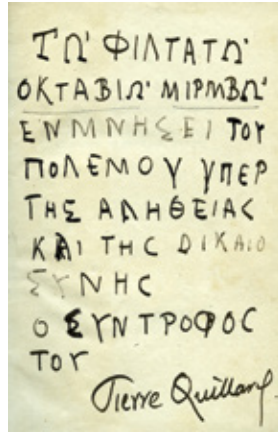 ΤΩ' ΦΙΛΤΑΤΩ'
ΟΚΤΑΒΙΩ' ΜΙΡΜΒΩ'
ΕΝΜΝΗΣΕΙ ΤΟΥ
ΠΟΛΕΜΟΥ ΥΠΕΡ
ΤΗΣ ΑΛΗΘΕΙΑΣ
ΚΑΙ ΤΗC DΙΚΑΙΟ
ΣΥΝΗC
Ο ΣΥΝΤΡΟΦΟC
ΤΟΥ
Pierre Quillard